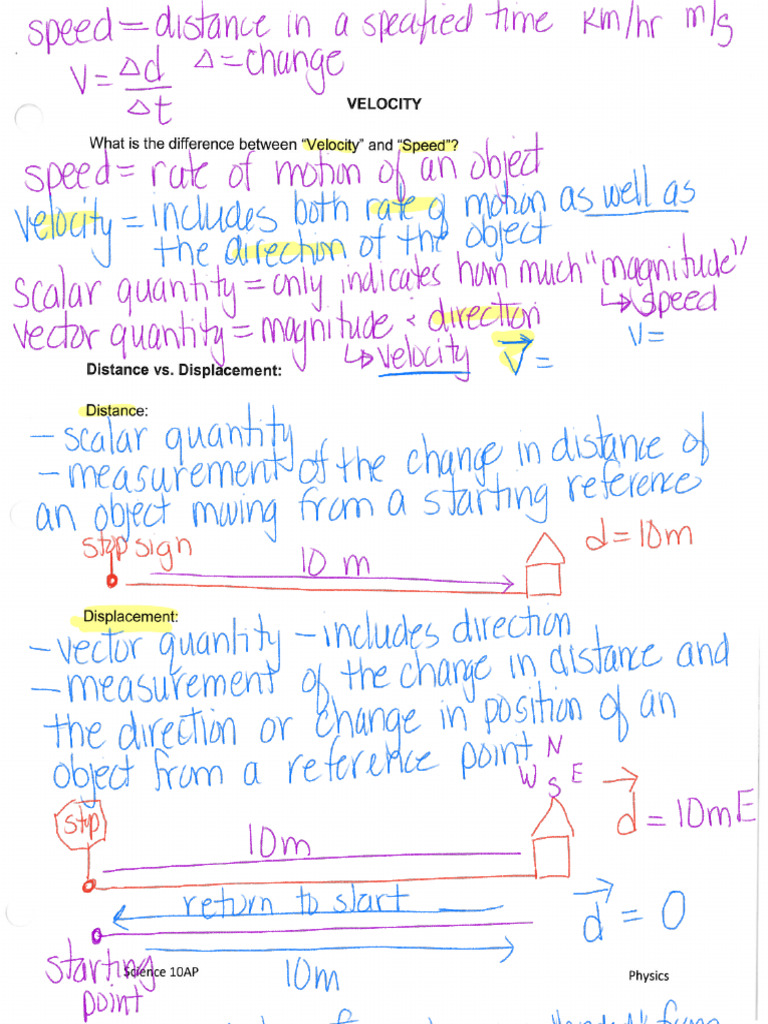 speed = distance in a specified time km/hr m/s
V = Δd/Δt Δ = change
VELOCITY
What is the difference between "Velocity" and "Speed"?
speed = rate of motion of an object
velocity = includes both rate of motion as well as
the direction of the object
scalar quantity = only indicates how much "magnitude"
↳ speed
vector quantity = magnitude & direction
V =
↳ velocity V⃗ =
Distance vs. Displacement:
Distance:
- scalar quantity
- measurement of the change in distance of
an object moving from a starting reference
stop sign 10 m d = 10m
Displacement:
- vector quantity - includes direction
- measurement of the change in distance and
the direction or change in position of an
object from a reference point
N
W S E
stop 10m d⃗ = 10m E
return to start d⃗ = 0
starting 10m
point
Science 10AP Physics